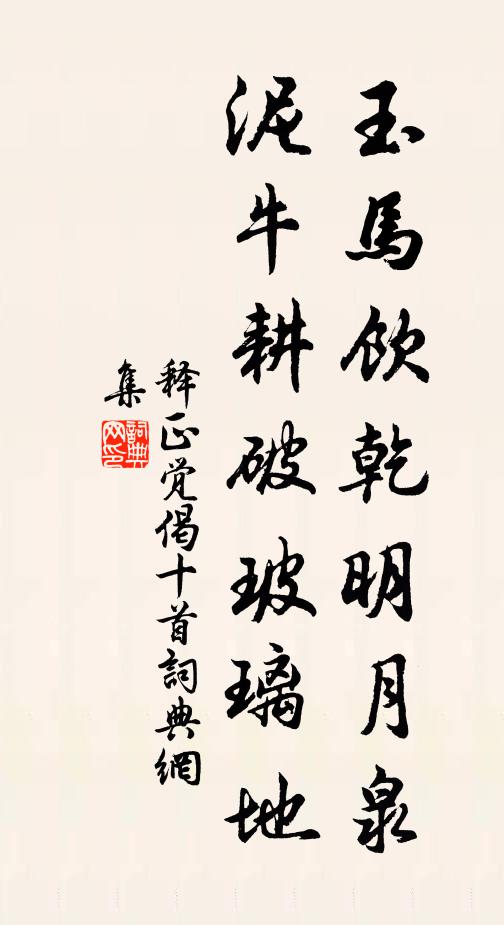 玉馬飲乾明月泉
泥牛耕破玻璃地
释正觉偈十首詞典網
集
詞典
网印